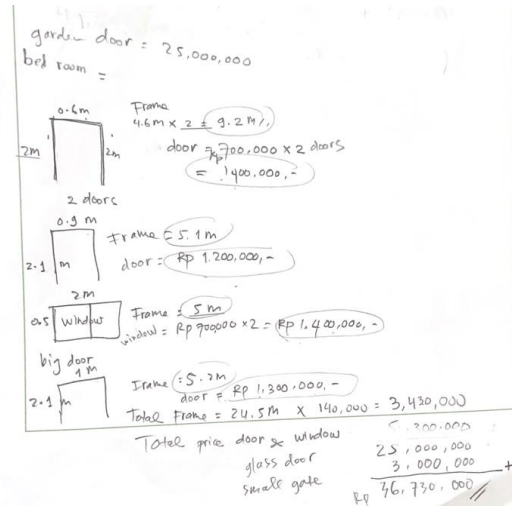 garden door = 25,000,000
bed room =
0.6m
2m
2m
2 doors
Frame
4.6m × 2 = 9.2m
door = Rp 700,000 × 2 doors
= 1400,000,-
0.9 m
2.1 m
Frame = 5.1m
door = Rp 1.200,000,-
2m
0.5 window
Frame = 5m
window = Rp 700,000 × 2 = Rp 1.400,000,-
big door
1m
2.1 m
Frame = 5.2m
door = Rp 1,300.000,-
Total Frame = 24.5m × 140,000 = 3,430,000
Total price door & window 5.300.000
glass door 25,000,000
small gate 3,000,000 +
Rp 36,730,000